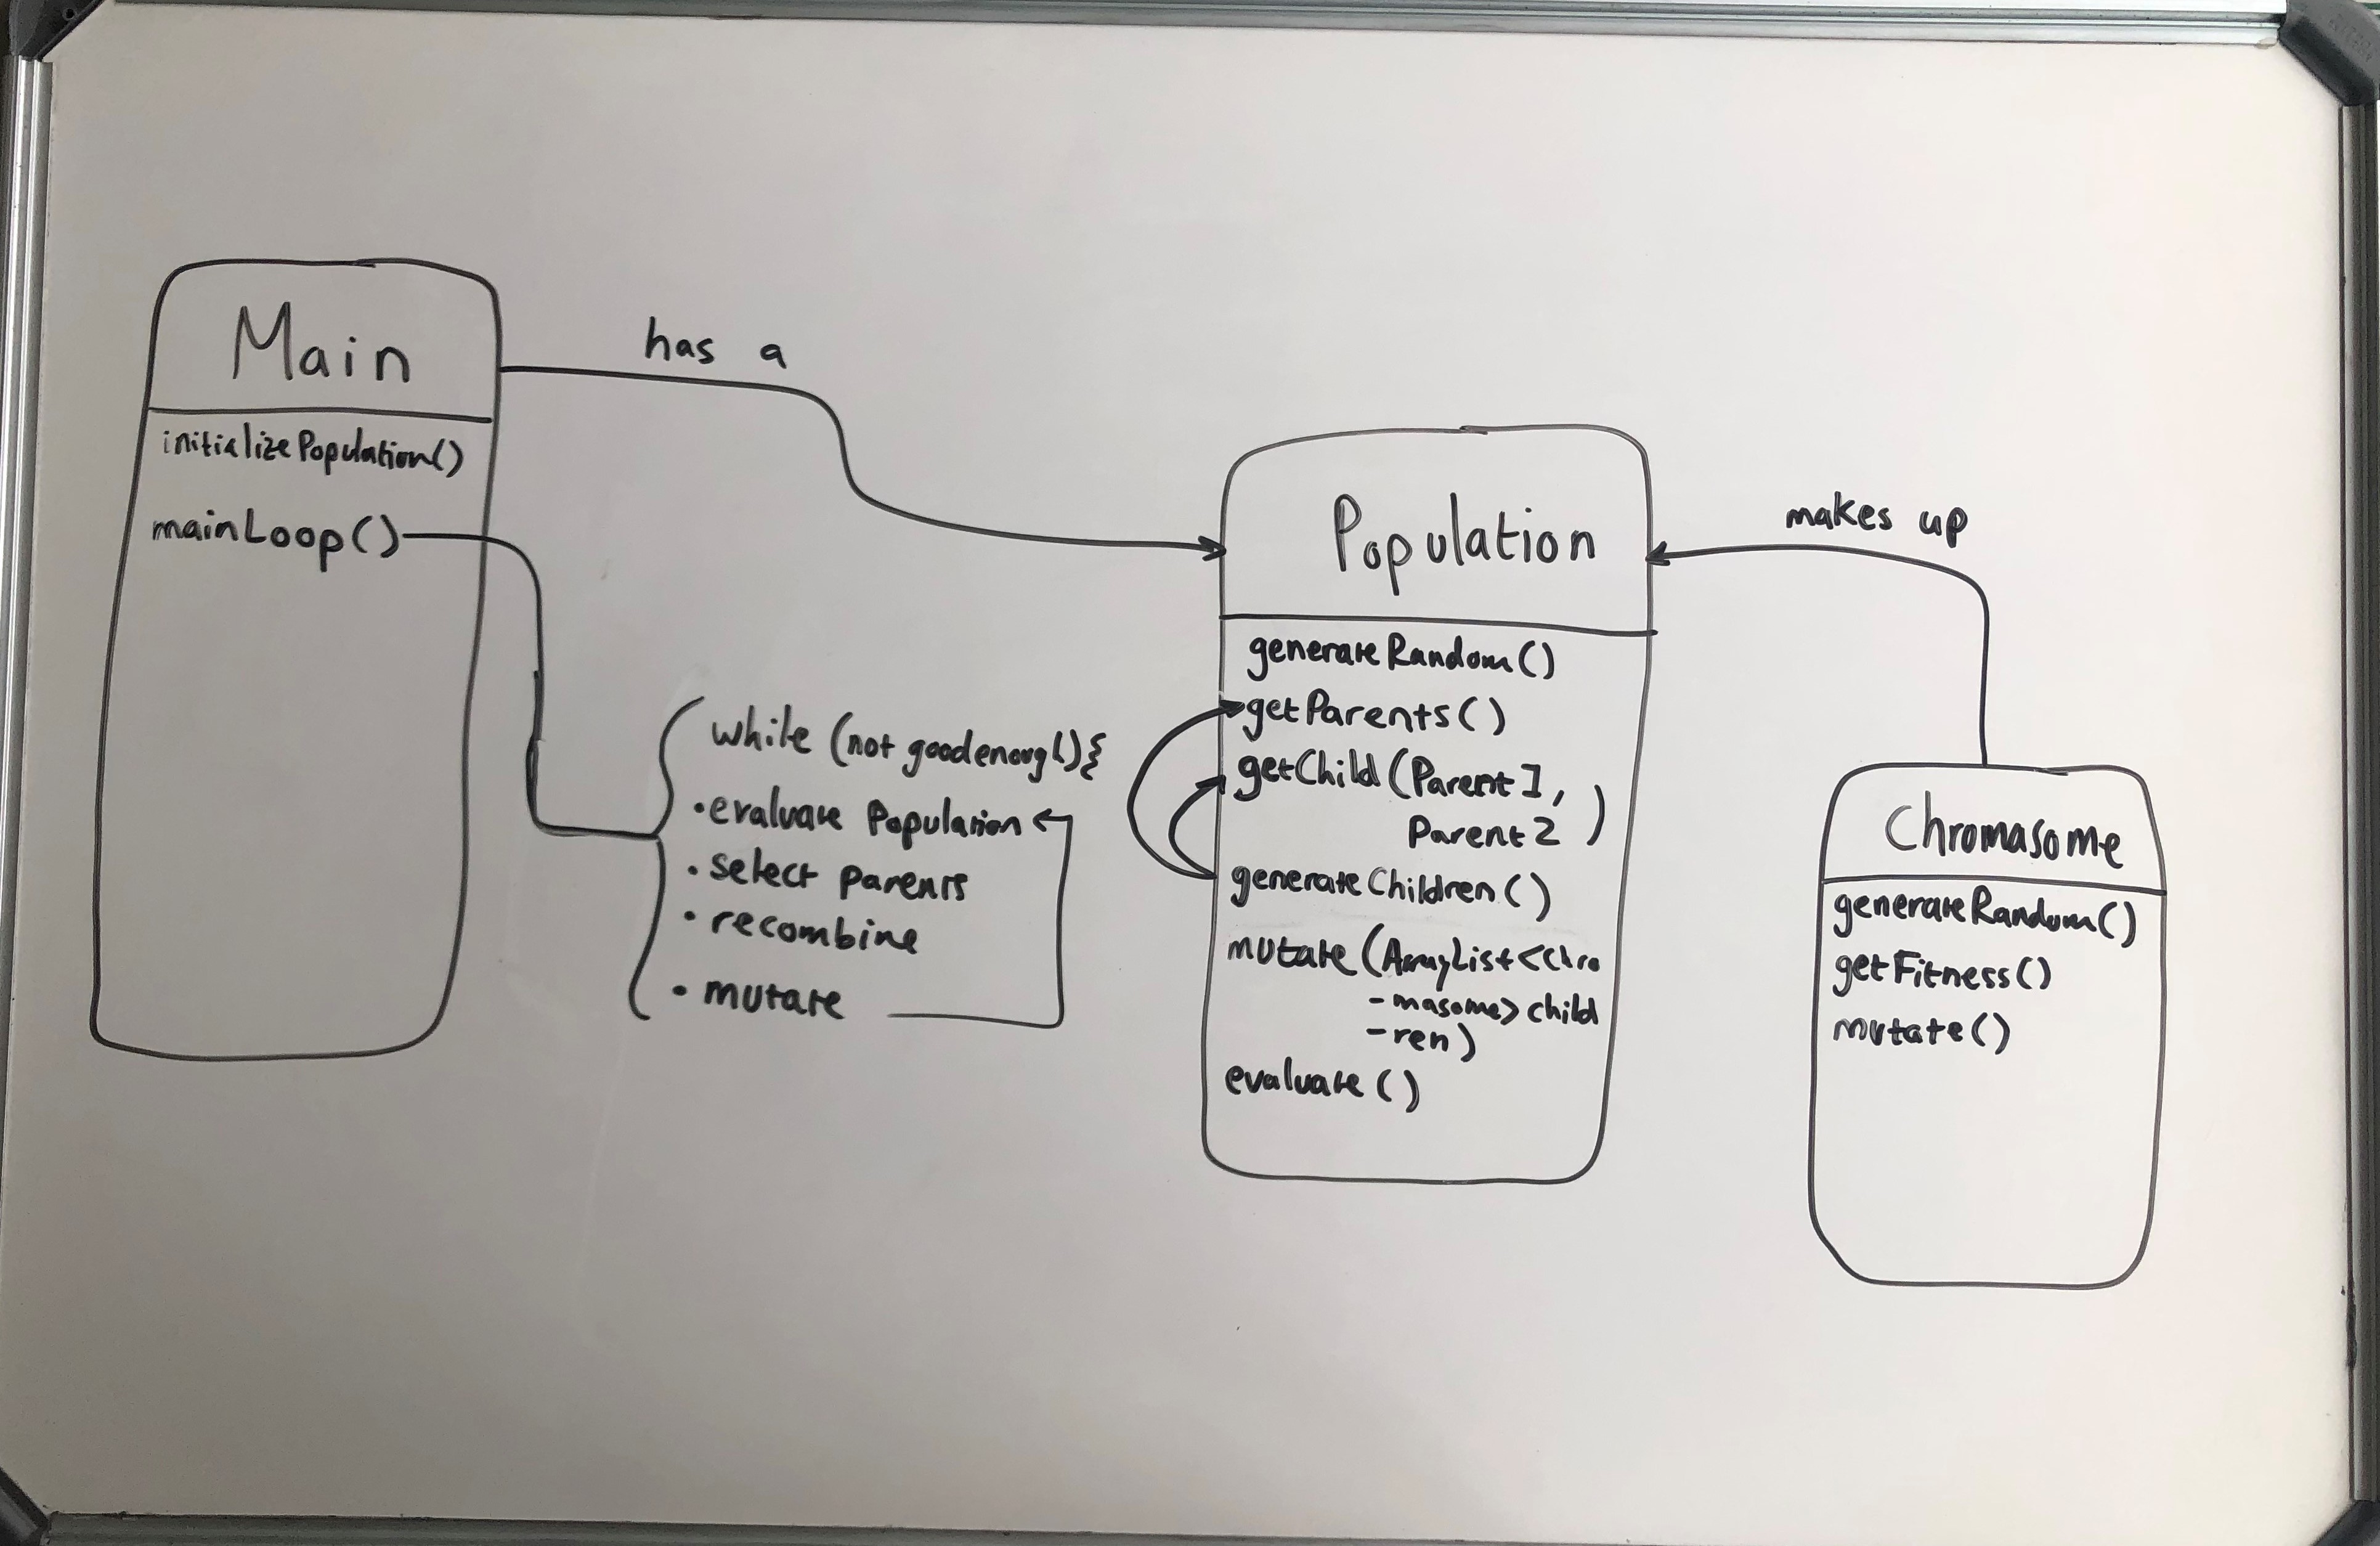 Main
initializePopulation()
mainLoop()
has a
while (not goodenough){
•evaluate Population
• select parents
• recombine
• mutate
Population
generateRandom()
getParents()
getChild(Parent1,
Parent2 )
generateChildren()
mutate (ArrayList<Chro
-masome> child
-ren)
evaluate()
makes up
Chromasome
generateRandom()
getFitness()
mutate()